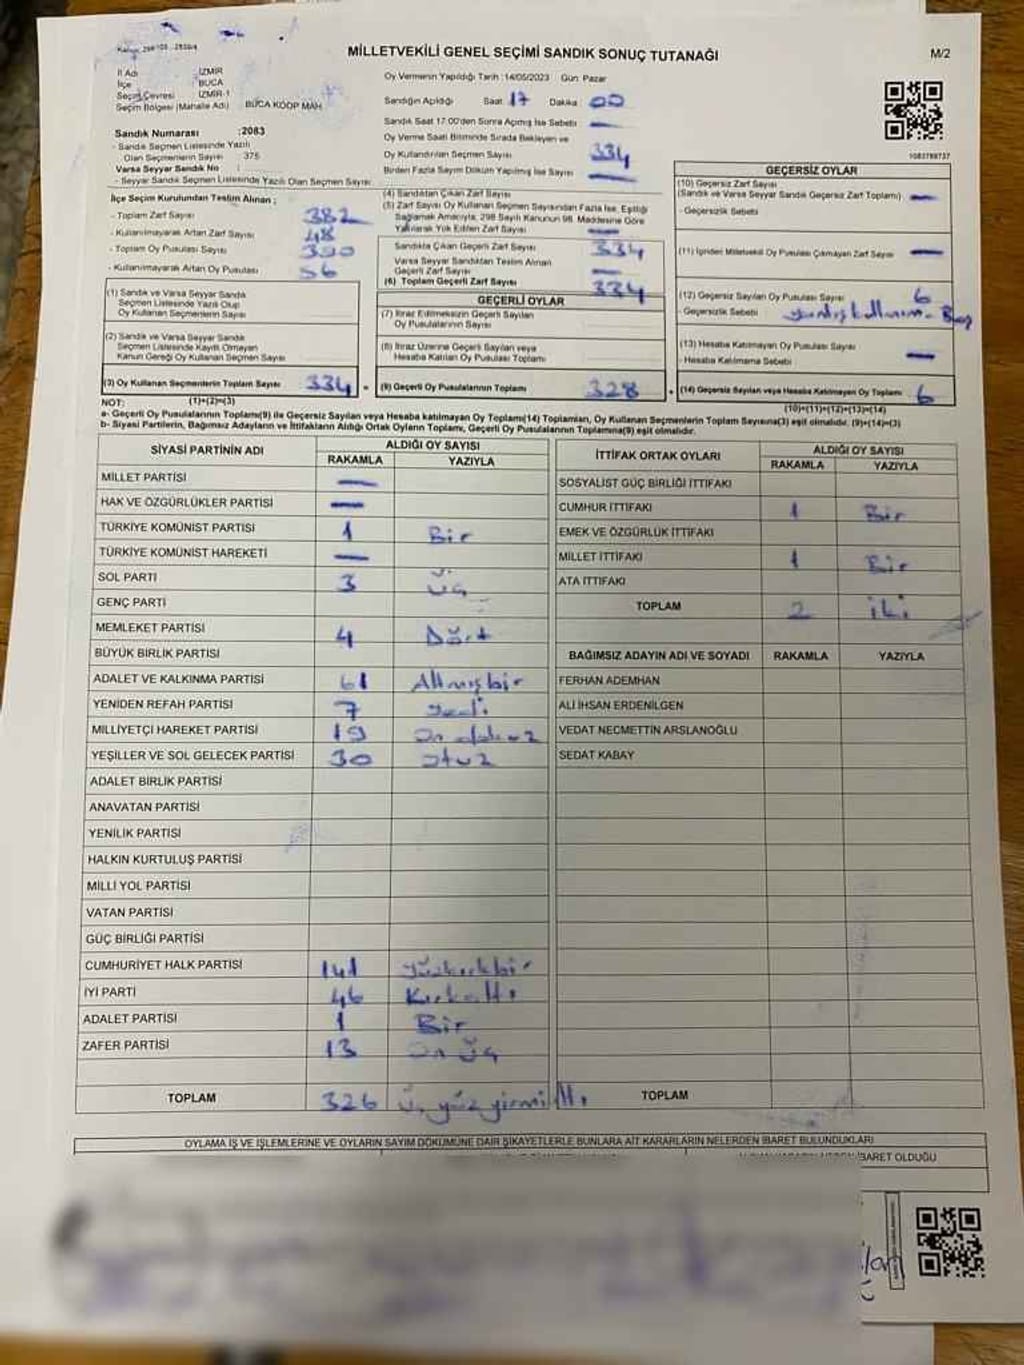 MİLLETVEKİLİ GENEL SEÇİMİ SANDIK SONUÇ TUTANAĞI
M/2
İl Adı : İZMİR
İlçe : BUCA
Seçim Çevresi : İZMİR-1
Seçim Bölgesi (Mahalle Adı) : BUCA KOOP MAH.
Sandık Numarası : 2083
- Sandık Seçmen Listesinde Yazılı
Olan Seçmenlerin Sayısı : 375
Varsa Seyyar Sandık No :
- Seyyar Sandık Seçmen Listesinde Yazılı Olan Seçmen Sayısı
Oy Vermenin Yapıldığı Tarih : 14/05/2023 Gün: Pazar
Sandığın Açıldığı Saat 17 Dakika 00
Sandık Saat 17:00'den Sonra Açılmış İse Sebebi —
Oy Verme Saati Bitiminde Sırada Bekleyen ve
Oy Kullandırılan Seçmen Sayısı 334
Birden Fazla Sayım Döküm Yapılmış İse Sayısı —
1083789737
İlçe Seçim Kurulundan Teslim Alınan ;
- Toplam Zarf Sayısı 382
- Kullanılmayarak Artan Zarf Sayısı 48
- Toplam Oy Pusulası Sayısı 390
- Kullanılmayarak Artan Oy Pusulası 56
(1) Sandık ve Varsa Seyyar Sandık
Seçmen Listesinde Yazılı Olup
Oy Kullanan Seçmenlerin Sayısı
(2) Sandık ve Varsa Seyyar Sandık
Seçmen Listesinde Kayıtlı Olmayan
Kanun Gereği Oy Kullanan Seçmen Sayısı
(3) Oy Kullanan Seçmenlerin Toplam Sayısı 334 =
(1)+(2)=(3)
(4) Sandıktan Çıkan Zarf Sayısı
(5) Zarf Sayısı Oy Kullanan Seçmen Sayısından Fazla İse, Eşitliği
Sağlamak Amacıyla, 298 Sayılı Kanunun 98. Maddesine Göre
Yakılarak Yok Edilen Zarf Sayısı —
Sandıkta Çıkan Geçerli Zarf Sayısı 334
Varsa Seyyar Sandıktan Teslim Alınan
Geçerli Zarf Sayısı —
(6) Toplam Geçerli Zarf Sayısı 334
GEÇERLİ OYLAR
(7) İtiraz Edilmeksizin Geçerli Sayılan
Oy Pusulalarının Sayısı
(8) İtiraz Üzerine Geçerli Sayılan veya
Hesaba Katılan Oy Pusulası Toplamı
(9) Geçerli Oy Pusulalarının Toplamı 328 +
GEÇERSİZ OYLAR
(10) Geçersiz Zarf Sayısı
(Sandık ve Varsa Seyyar Sandık Geçersiz Zarf Toplamı) —
- Geçersizlik Sebebi
(11) İçinden Milletvekili Oy Pusulası Çıkmayan Zarf Sayısı —
(12) Geçersiz Sayılan Oy Pusulası Sayısı 6
- Geçersizlik Sebebi
(13) Hesaba Katılmayan Oy Pusulası Sayısı —
- Hesaba Katılmama Sebebi
(14) Geçersiz Sayılan veya Hesaba Katılmayan Oy Toplamı 6
(10)+(11)+(12)+(13)=(14)
NOT:
a- Geçerli Oy Pusulalarının Toplamı(9) ile Geçersiz Sayılan veya Hesaba katılmayan Oy Toplamı(14) Toplamları, Oy Kullanan Seçmenlerin Toplam Sayısına(3) eşit olmalıdır. (9)+(14)=(3)
b- Siyasi Partilerin, Bağımsız Adayların ve İttifakların Aldığı Ortak Oyların Toplamı, Geçerli Oy Pusulalarının Toplamına(9) eşit olmalıdır.
SİYASİ PARTİNİN ADI ALDIĞI OY SAYISI
RAKAMLA YAZIYLA
MİLLET PARTİSİ —
HAK VE ÖZGÜRLÜKLER PARTİSİ —
TÜRKİYE KOMÜNİST PARTİSİ 1 Bir
TÜRKİYE KOMÜNİST HAREKETİ —
SOL PARTİ 3 Üç
GENÇ PARTİ
MEMLEKET PARTİSİ 4 Dört
BÜYÜK BİRLİK PARTİSİ
ADALET VE KALKINMA PARTİSİ 61 Altmışbir
YENİDEN REFAH PARTİSİ 7 Yedi
MİLLİYETÇİ HAREKET PARTİSİ 19 On dokuz
YEŞİLLER VE SOL GELECEK PARTİSİ 30 Otuz
ADALET BİRLİK PARTİSİ
ANAVATAN PARTİSİ
YENİLİK PARTİSİ
HALKIN KURTULUŞ PARTİSİ
MİLLİ YOL PARTİSİ
VATAN PARTİSİ
GÜÇ BİRLİĞİ PARTİSİ
CUMHURİYET HALK PARTİSİ 141 Yüzkırkbir
İYİ PARTİ 46 Kırkaltı
ADALET PARTİSİ 1 Bir
ZAFER PARTİSİ 13 On üç
TOPLAM 326 Üç yüz yirmi altı
İTTİFAK ORTAK OYLARI ALDIĞI OY SAYISI
RAKAMLA YAZIYLA
SOSYALİST GÜÇ BİRLİĞİ İTTİFAKI
CUMHUR İTTİFAKI 1 Bir
EMEK VE ÖZGÜRLÜK İTTİFAKI
MİLLET İTTİFAKI 1 Bir
ATA İTTİFAKI
TOPLAM 2 İki
BAĞIMSIZ ADAYIN ADI VE SOYADI RAKAMLA YAZIYLA
FERHAN ADEMHAN
ALİ İHSAN ERDENİLGEN
VEDAT NECMETTİN ARSLANOĞLU
SEDAT KABAY
TOPLAM
OYLAMA İŞ VE İŞLEMLERİNE VE OYLARIN SAYIM DÖKÜMÜNE DAİR ŞİKAYETLERLE BUNLARA AİT KARARLARIN NELERDEN İBARET BULUNDUKLARI
İBARET OLDUĞU